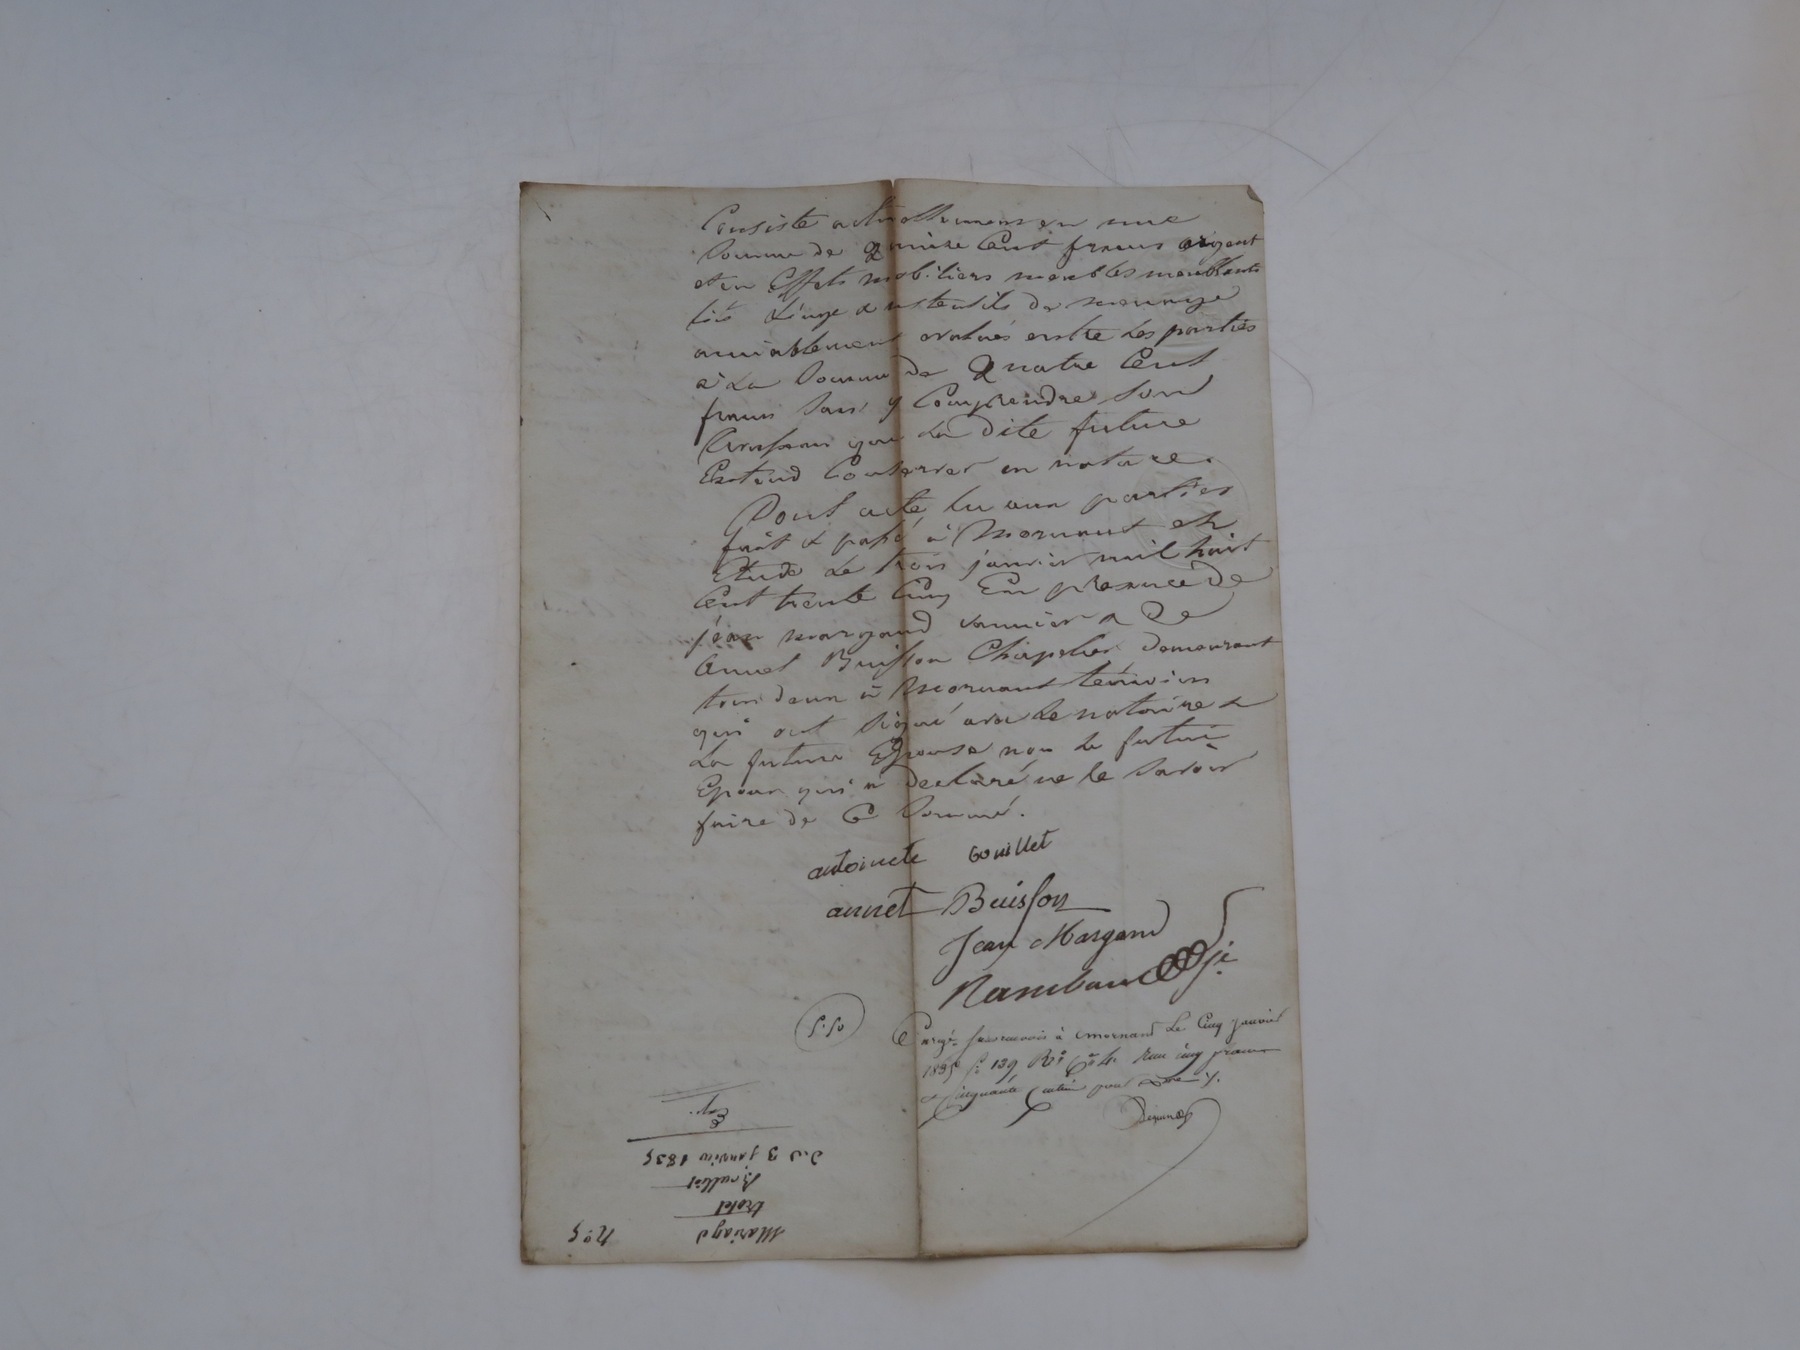 Consiste actuellement en une
Somme de quinze Cent francs argent
et en Effets mobiliers meubles meublants
lits Linge & ustensils de mennage
amiablement evalués entre les parties
à La Somme de Quatre Cent
francs Sans y Comprendre Son
trousseau que La dite future
Entend Conserver en nature.
Dont acte lu aux parties
fait & passé à Mornant en
Etude Le trois janvier mil huit
Cent trente Cinq En presence de
jéan margand vannier & De
Annet Buisson Chapelier demeurant
tous deux à Mornant témoins
qui ont Signé avec Le notaire &
La future Epouse non le futur
Epoux qui a declaré ne le Savoir
faire de Ce Sommé.
antoinete Gouillet
annet Buisson
Jean Margand
Rambaud
5.50
à mornant Le Cinq janvier
1835 f° 139 R° C° 4 Reçu cinq francs
& Cinquante Centimes pour
N° 5
Mariage
trotet
du 3 janvier 1835
Exp.